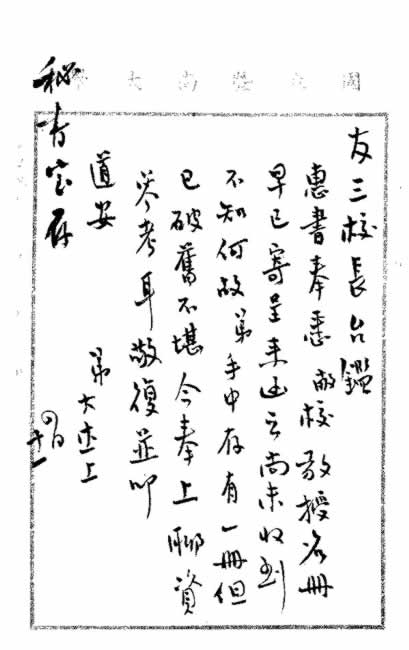 國立暨南大學
友三校長台鑑
惠書奉悉敝校教授名冊
早已寄呈来函云尚未收到
不知何故弟手中存有一冊但
已破舊不堪今奉上聊資
參考耳敬復並叩
道安
弟大
上
秘書室存